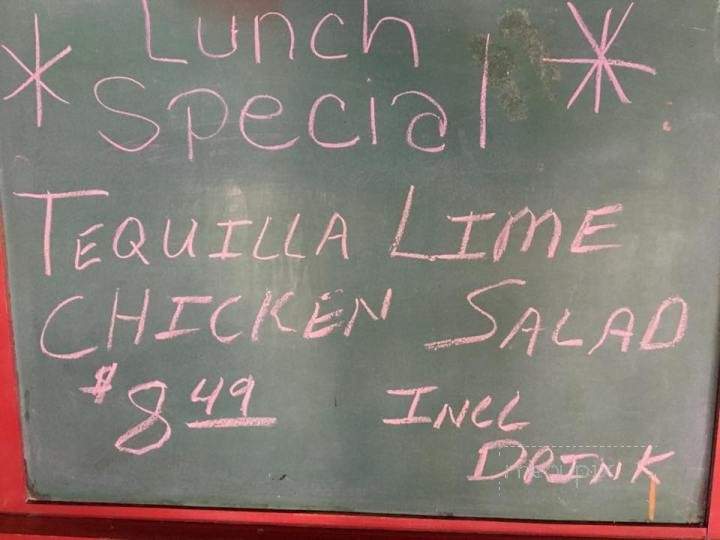 Lunch
* Special *
TEQUILLA LIME
CHICKEN SALAD
$8 49 INCL
DRINK
menupix